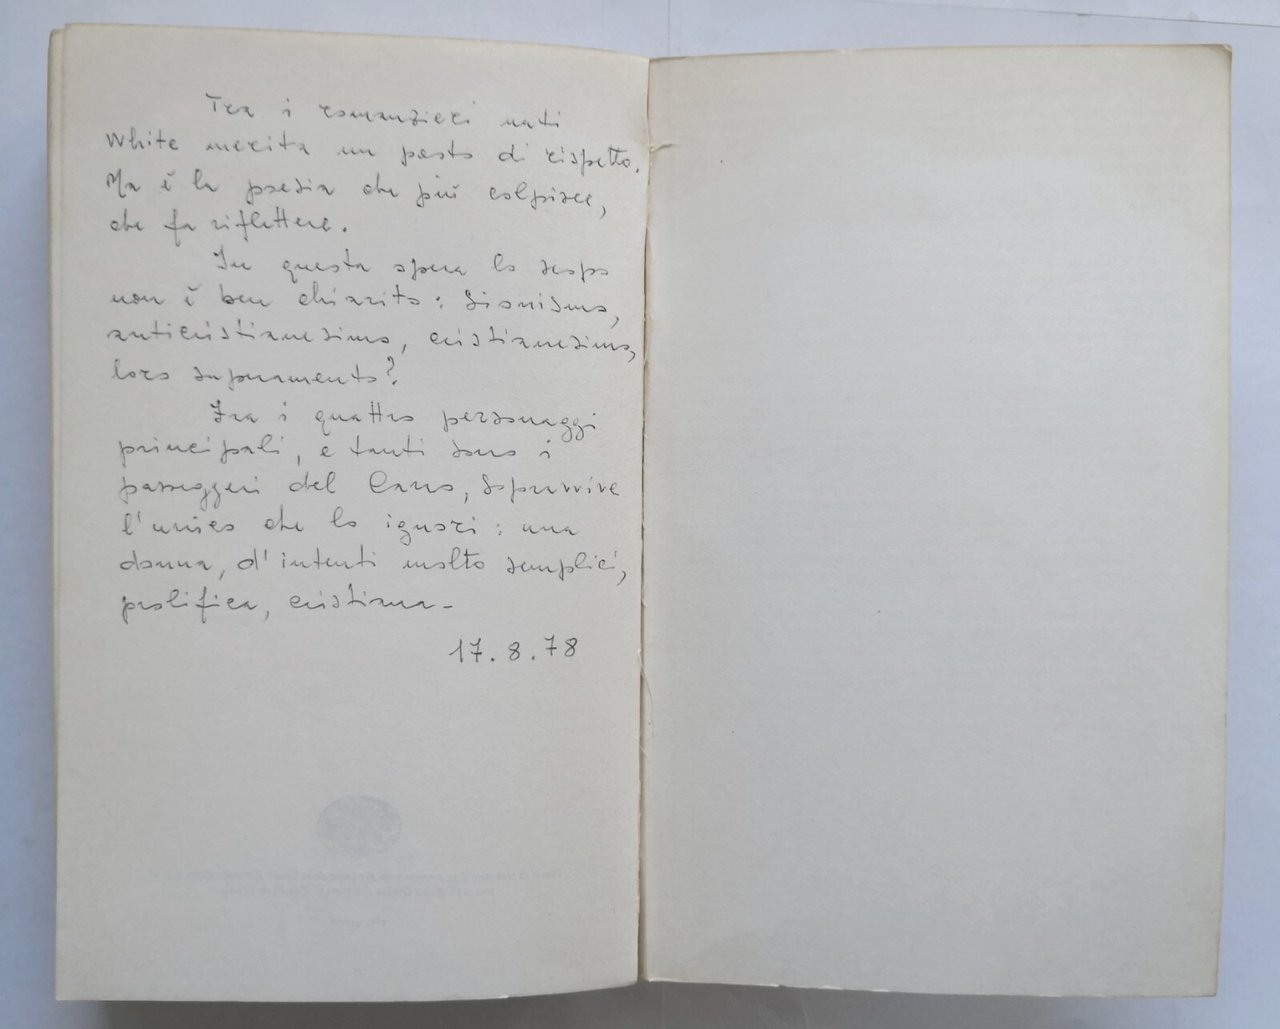 Tra i romanzieri nati
White merita un posto di rispetto.
Ma è la poesia che più colpisce,
che fa riflettere.
In questa opera lo scopo
non è ben chiarito: sionismo,
anticristianesimo, cristianesimo,
loro superamento?
Fra i quattro personaggi
principali, e tanti sono i
passeggeri del Carro, sopravvive
l'unico che lo ignori: una
donna, d'intenti molto semplici,
prolifica, cristiana-
17.8.78